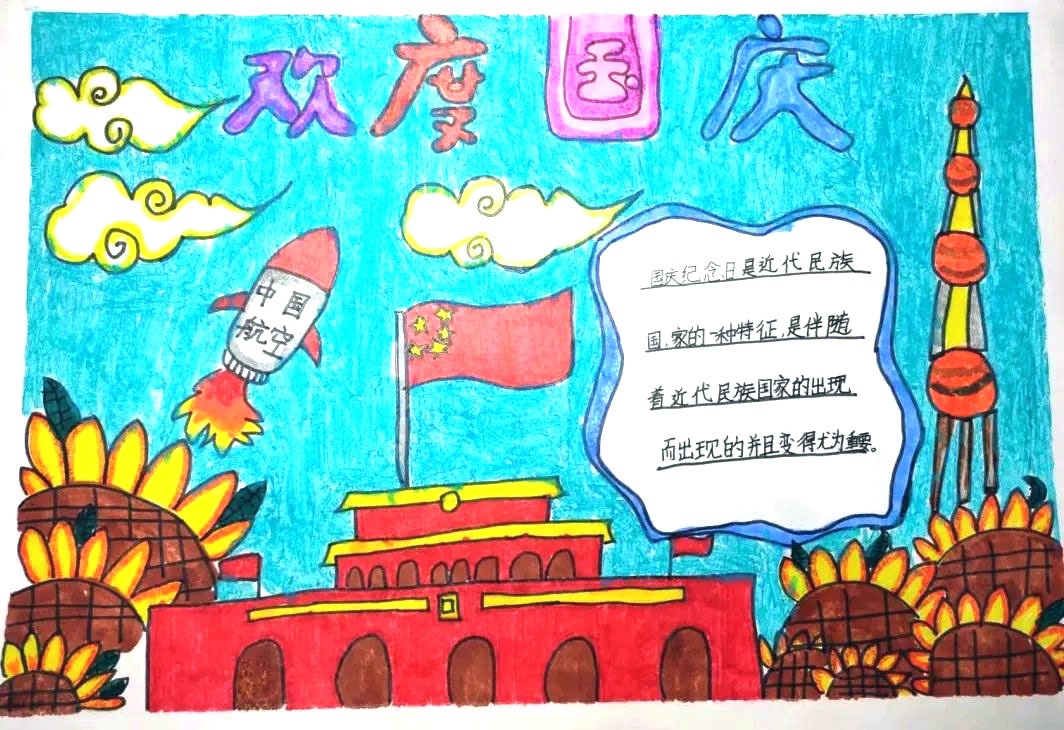 欢度国庆
中国
航空
国庆纪念日是近代民族
国家的一种特征,是伴随
着近代民族国家的出现
而出现的并且变得尤为重要。